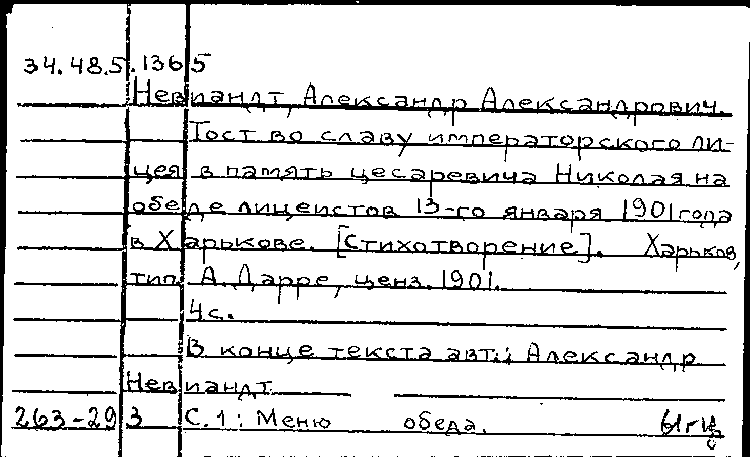 34.48.5.1365
Невиандт, Александр Александрович.
Тост во славу императорского ли-
цея в память цесаревича Николая на
обеде лицеистов 13-го января 1901 года
в Харькове. [Стихотворение]. Харьков,
тип. А. Дарре, ценз. 1901.
4 с.
В конце текста авт.: Александр
Невиандт
263-293 С. 1: Меню обеда.